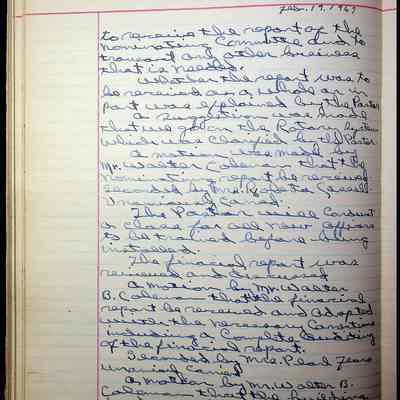 Febr. 19, 1969
to receive the report of the
Nominating Committee and to
transact any other business
that is needed.
Whether the report was to
be received as a whole or in
part was explained by the Pastor
A suggestion was made
that we go on the Rotary System
which was clarified by the Pastor
A motion was made by
Mr. Walter Coleman that the
Nominating report be received
seconded by Mrs.
carried.
The Pastor will conduct
a class for all new officers
to be trained before being
installed.
The financial report was
received and
A motion by Mr. Walter
B. Coleman that the financial
report be received and adopted
with the necessary corrections
including a complete auditing
of the financial report.
Seconded by Mrs. Pearl
carried
A motion by Mr. Walter B.
Coleman that the building